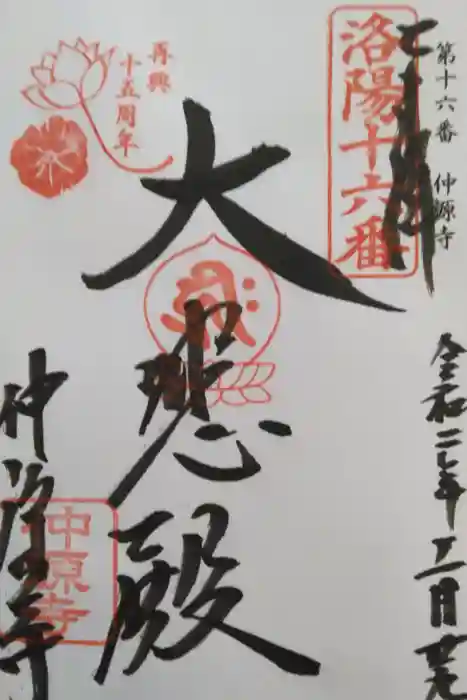 第十六番　仲源寺
洛陽十六番
令和二年
再興
十五周年
大悲殿
仲源寺
仲源寺